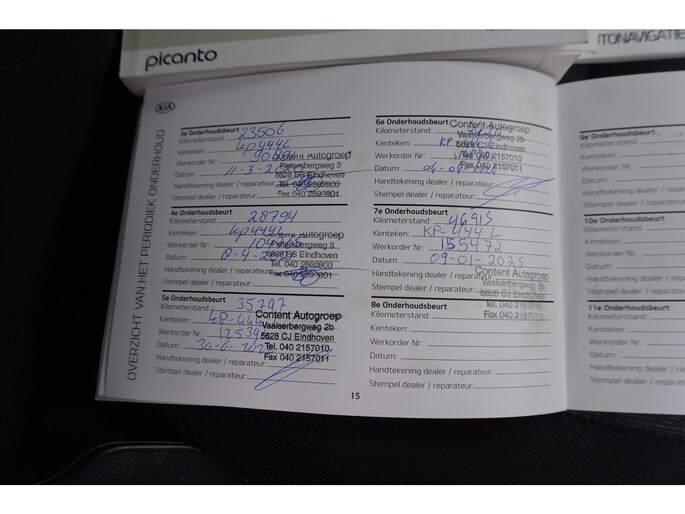 picanto
TONAVIGATIE
KIA
OVERZICHT VAN HET PERIODIEK ONDERHOUD
3e Onderhoudsbeurt
Kilometerstand: 23506
Kenteken: KP444L
Werkorder Nr:
Datum: 11-3-
Handtekening dealer / reparateur:
Stempel dealer / reparateur:
Content Autogroep
Pietersbergweg 3
5628 BS Eindhoven
Tel. 040 2592800
Fax 040 2592801
4e Onderhoudsbeurt
Kilometerstand: 28794
Kenteken: KP444L
Werkorder Nr: 104
Datum: 8-4-
Handtekening dealer / reparateur:
Stempel dealer / reparateur:
Content Autogroep
Pietersbergweg 3
5628 BS Eindhoven
Tel. 040 2592800
Fax 040 2592801
5e Onderhoudsbeurt
Kilometerstand: 35297
Kenteken: KP-444
Werkorder Nr: 12539
Datum: 30-6-
Handtekening dealer / reparateur:
Stempel dealer / reparateur:
Content Autogroep
Vaalserbergweg 2b
5628 CJ Eindhoven
Tel. 040 2157010
Fax 040 2157011
6e Onderhoudsbeurt
Kilometerstand:
Kenteken: KP
Werkorder Nr:
Datum: 04-04-
Handtekening dealer / reparateur:
Stempel dealer / reparateur:
Content Autogroep
Vaalserbergweg 2b
5628 CJ Eindhoven
Tel. 040 2157010
Fax 040 2157011
7e Onderhoudsbeurt
Kilometerstand: 46915
Kenteken: KP-444 L
Werkorder Nr: 155472
Datum: 09-01-2025
Handtekening dealer / reparateur:
Stempel dealer / reparateur:
Content Autogroep
Vaalserbergweg 2b
5628 CJ Eindhoven
Tel. 040 2157010
Fax 040 2157011
8e Onderhoudsbeurt
Kilometerstand:
Kenteken:
Werkorder Nr:
Datum:
Handtekening dealer / reparateur:
Stempel dealer / reparateur:
15
9e Onderhoudsbeurt
Kilometerstand:
Kenteken:
Werkorder Nr:
Datum:
Handtekening
Stempel deale
10e Onderhoud
Kilometerstand
Kenteken:
Werkorder Nr:
Datum:
Handtekening
Stempel deale
11e Onderhoud
Kilometerstand
Kenteken:
Werkorder Nr:
Datum:
Handtekening
Stempel deale